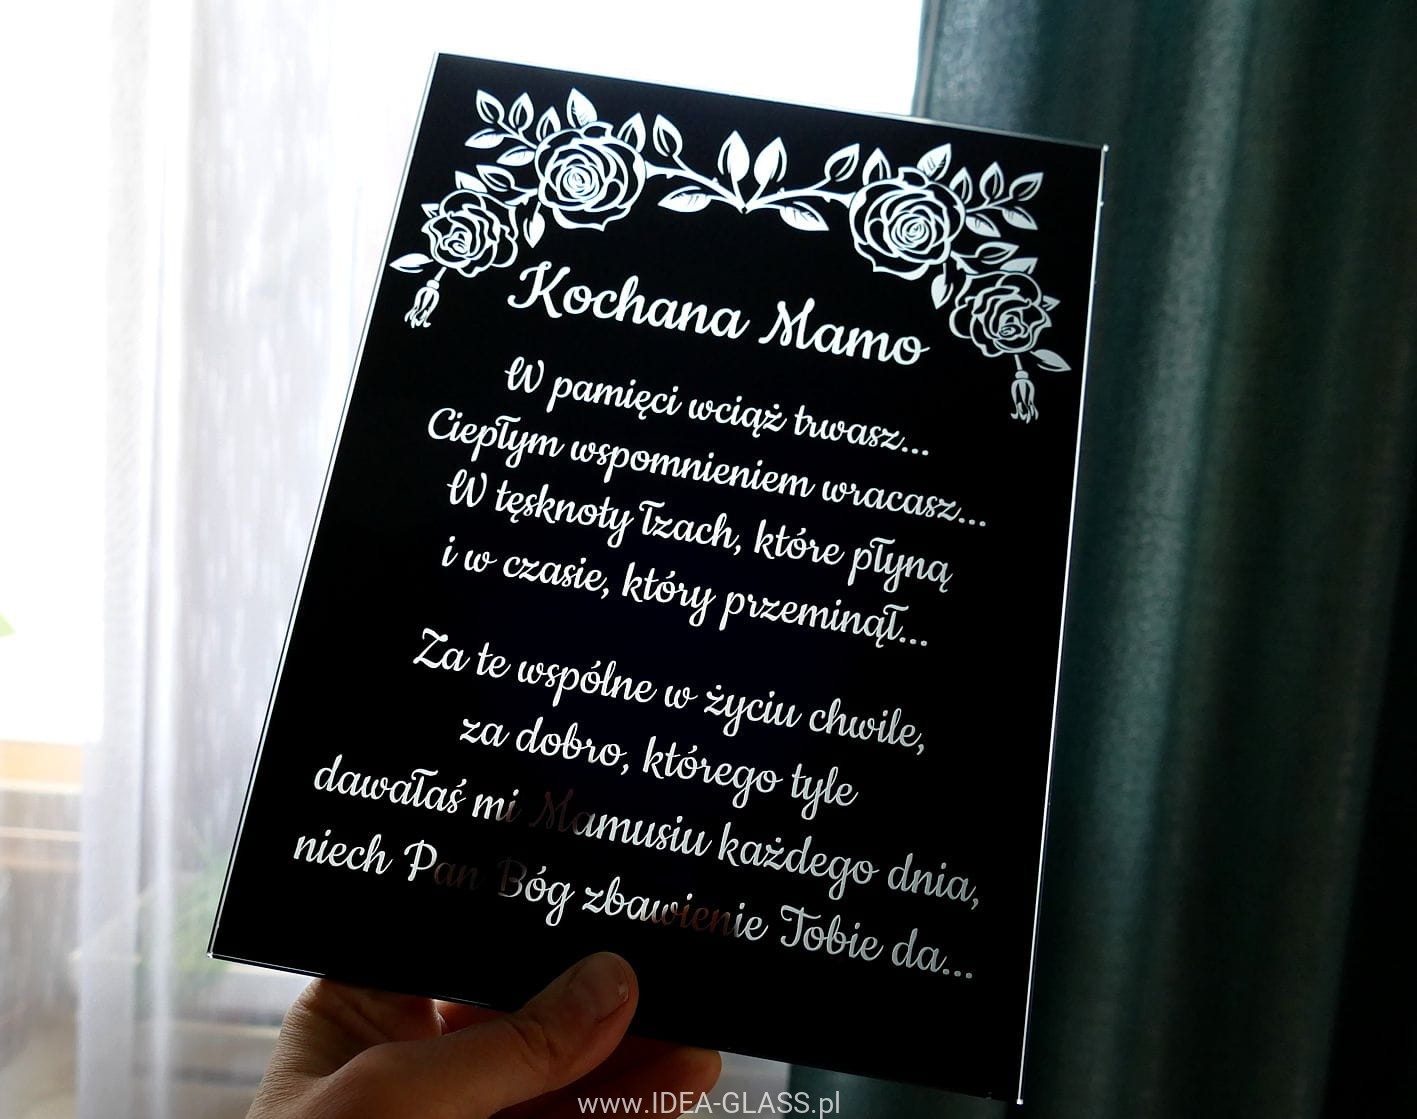 Kochana Mamo
W pamięci wciąż trwasz...
Ciepłym wspomnieniem wracasz...
W tęsknoty łzach, które płyną
i w czasie, który przeminął...
Za te wspólne w życiu chwile,
za dobro, którego tyle
dawałaś mi Mamusiu każdego dnia,
niech Pan Bóg zbawienie Tobie da...
www.IDEA-GLASS.pl